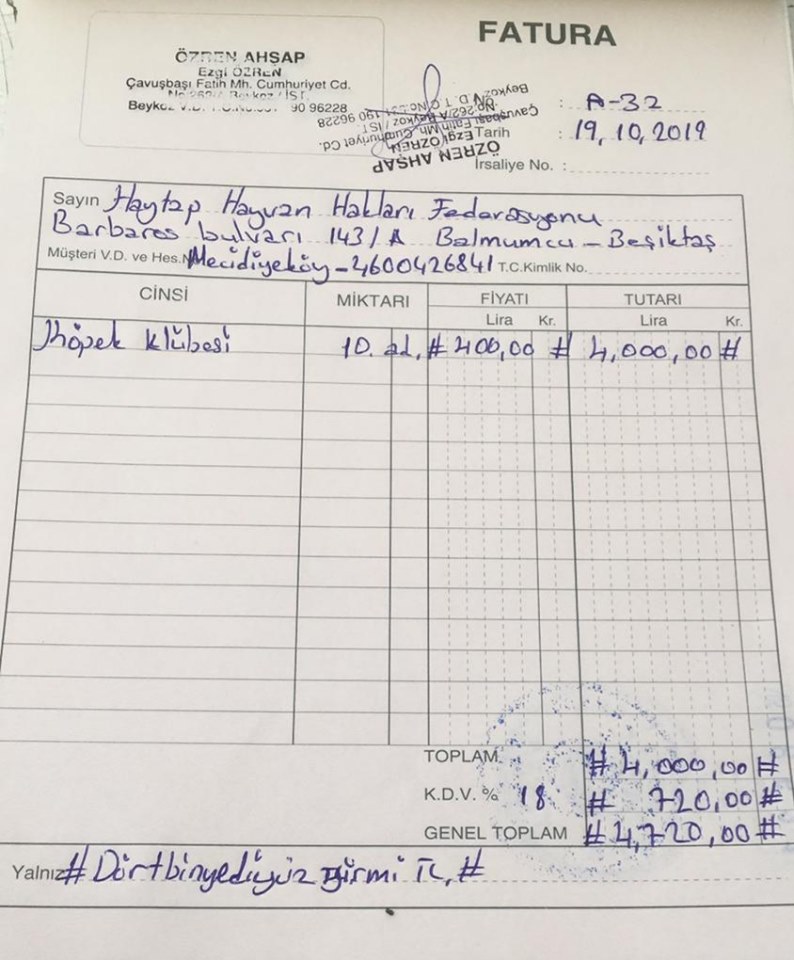 FATURA
ÖZREN AHŞAP
Ezgi ÖZREN
Çavuşbaşı Fatih Mh. Cumhuriyet Cd.
No 262/A Beykoz / İST
Beykoz V.D. 90 96228
ÖZREN AHŞAP
Ezgi ÖZREN
Çavuşbaşı Fatih Mh. Cumhuriyet Cd.
No 262/A Beykoz / İST
Beykoz 190 96228
: A-32
Tarih : 19,10,2019
İrsaliye No. :
Sayın Haytap Hayvan Hakları Fedarasyonu
Barbaros bulvarı 143/A Balmumcu - Beşiktaş
Müşteri V.D. ve Hes. Mecidiyeköy - 4600426841 T.C.Kimlik No.
CİNSİ MİKTARI FİYATI TUTARI
Lira Kr. Lira Kr.
Köpek klübesi 10. ad, # 400,00 # 4,000,00 #
TOPLAM. # 4,000,00 #
K.D.V. % 18 # 720,00 #
GENEL TOPLAM # 4,720,00 #
Yalnız # Dörtbinyediyüz yirmi TL, #